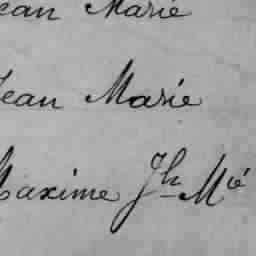 Jean Marie
Jean Marie
Maxime Jh Mie